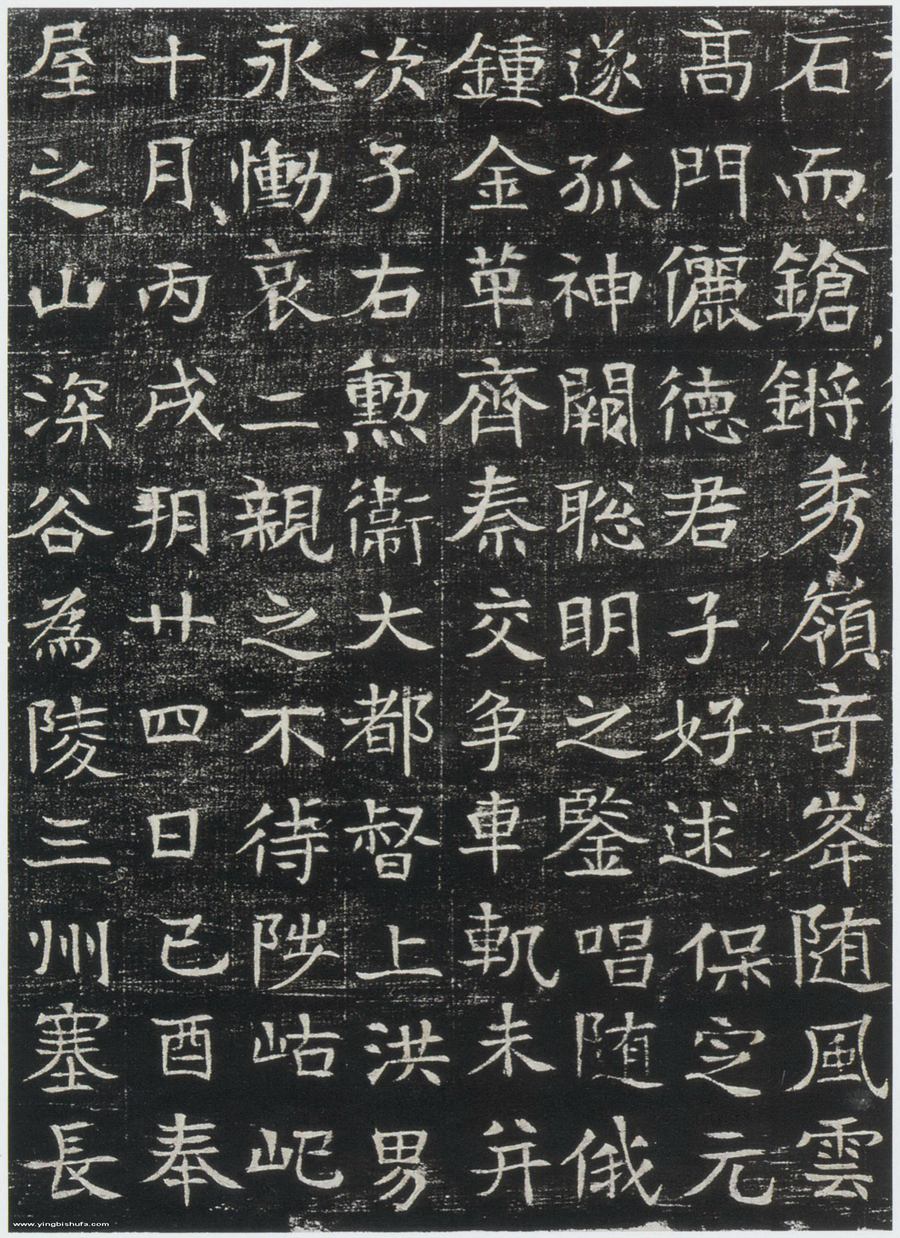 石而鎗鏘秀嶺竒峯随風雲
髙門儷徳君子好逑保定元
遂孤神闕聡明之鑒唱随俄
鍾金革齊秦交争車軌未并
次子右勲衛大都督上洪男
永慟哀二親之不待陟岵屺
十月丙戌朔廿四日己酉奉
屋之山深谷為陵三州塞長
www.yingbishufa.com